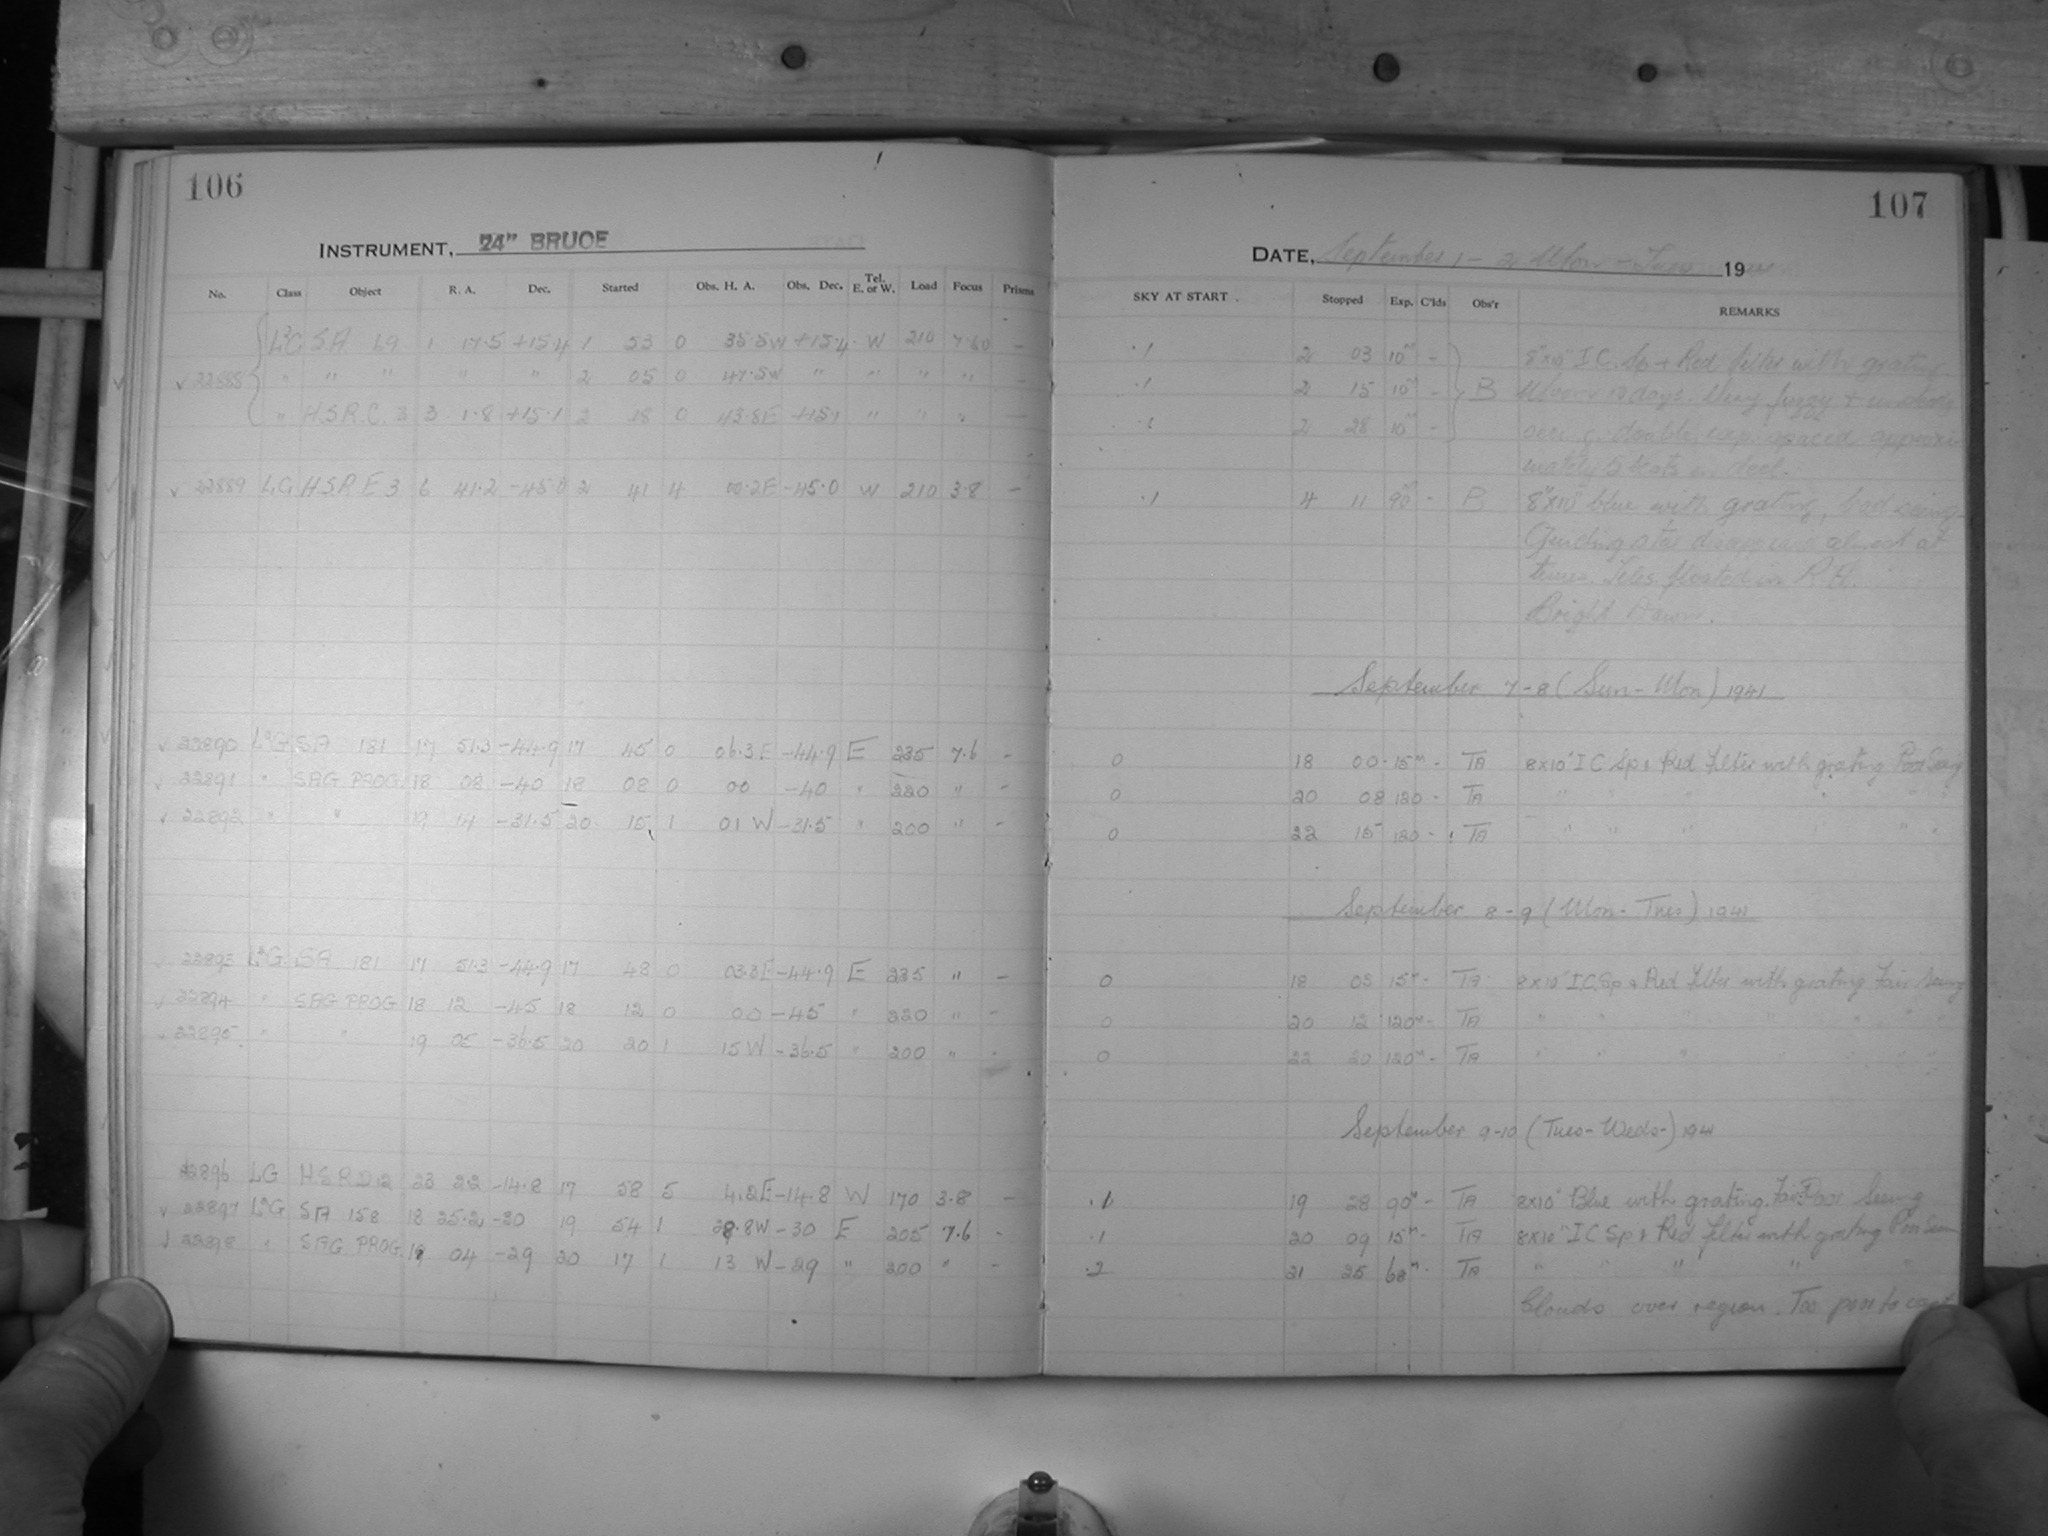 106
INSTRUMENT, 24" BRUCE
No. Class Object R. A. Dec. Started Obs. H. A. Obs. Dec. Tel. E. or W. Load Focus Prisms
L²G S.A 69 1 17.5 +15.4 1 53 0 35.5W +15.4 W 210 7.60 -
22888 " " " " " 2 05 0 47.5W " " " " -
" H.S.R.C. 3 3 1.8 +15.1 2 18 0 43.8E +15.1 " " " -
22889 LG H.S.R.E 3 6 41.2 -45.0 2 41 4 00.2E -45.0 W 210 3.8 -
22890 L²G SA 181 17 51.3 -44.9 17 45 0 06.3E -44.9 E 235 7.6 -
22891 " SAG PROG. 18 08 -40 18 08 0 00 -40 " 220 " -
22892 " " 19 14 -31.5 20 15 1 01 W -31.5 " 200 " -
22893 L²G SA 181 17 51.3 -44.9 17 48 0 03.3E -44.9 E 235 " -
22894 " SAG PROG 18 12 -45 18 12 0 00 -45 " 220 " -
22895 " " 19 05 -36.5 20 20 1 15 W -36.5 " 200 " -
22896 LG H.S.R.D 12 23 22 -14.8 17 58 5 4.2E -14.8 W 170 3.8 -
22897 L²G SA 158 18 25.2 -30 19 54 1 28.8W -30 E 205 7.6 -
22898 " SAG PROG. 19 04 -29 20 17 1 13 W -29 " 200 " -
107
DATE, September 1 - 2 Mon - Tues 1941
SKY AT START. Stopped Exp. C'lds Obs'r REMARKS
.1 2 03 10ᵐ - 8"x10" I C. Sp + Red filter with grating
.1 2 15 10ᵐ - B Moon 10 days. Very fuzzy +
.1 2 28 10ᵐ - double exp. spaced approxi
mately in decl.
.1 4 11 90ᵐ - B 8"x10" blue with grating, bad seeing
Guiding star disappears almost at
times. floated in R.A.
Bright Dawn.
September 7-8 (Sun-Mon) 1941
0 18 00 15ᵐ - TA 8x10" I C Sp & Red Filter with grating Poor Seeing
0 20 08 120 - TA " " " " "
0 22 15 120 - TA " " " " "
September 8-9 (Mon-Tues) 1941
0 18 03 15ᵐ - TA 8x10" I.C. Sp & Red filter with grating Fair Seeing
0 20 12 120ᵐ - TA " " " " " "
0 22 20 120ᵐ - TA " " " " " "
September 9-10 (Tues-Weds-) 1941
.1 19 28 90ᵐ - TA 8x10" Blue with grating. Fair-Poor Seeing
.1 20 09 15ᵐ - TA 8x10" I C Sp & Red filter with grating Poor Seein
.2 21 25 68ᵐ - TA " " " " "
Clouds over region. Too poor to cont